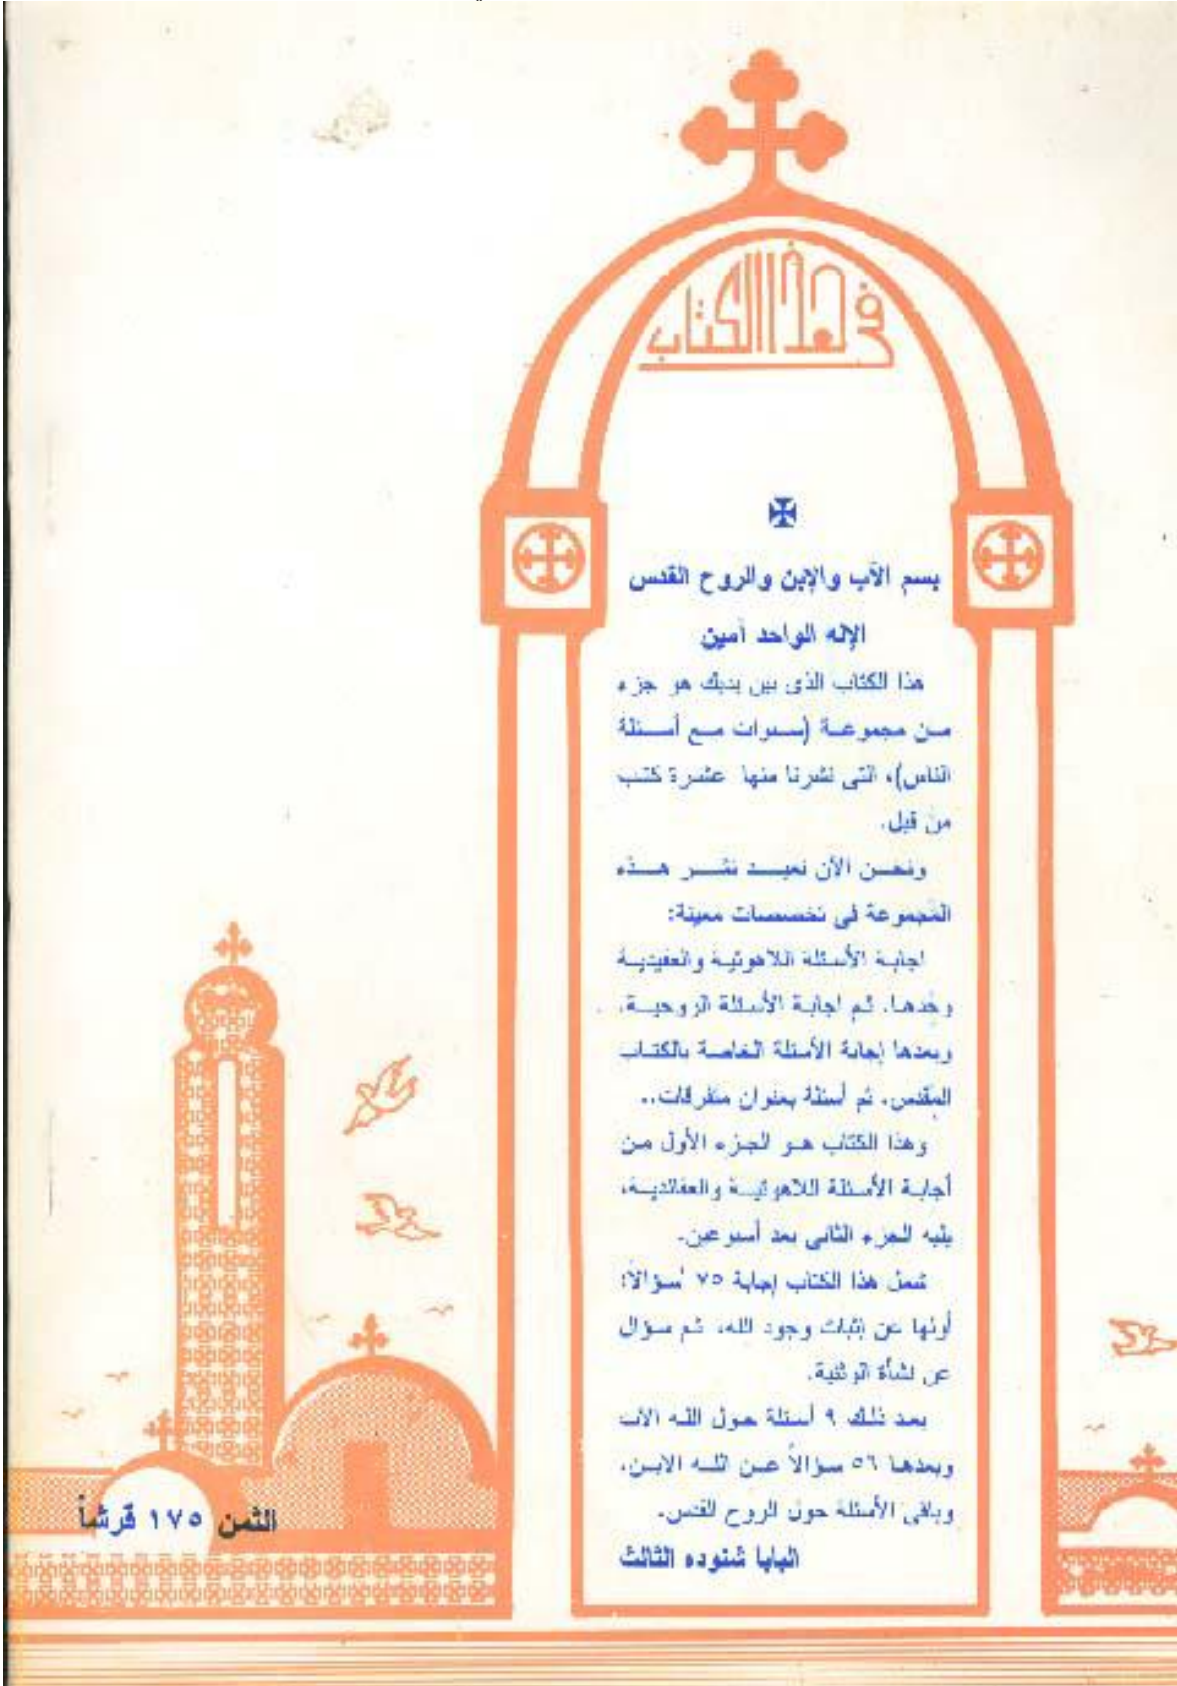 فى هذا الكتاب
بسم الآب والإبن والروح القدس
الإله الواحد آمين
هذا الكتاب الذى بين يديك هو جزء
من مجموعة (سنوات مع أسئلة
الناس)، التى نشرنا منها عشرة كتب
من قبل.
ونحن الآن نعيد نشر هذه
المجموعة فى تخصصات معينة:
اجابة الأسئلة اللاهوتية والعقيدية
وحدها، ثم اجابة الأسئلة الروحية،
وبعدها إجابة الأسئلة الخاصة بالكتاب
المقدس، ثم أسئلة بعنوان متفرقات..
وهذا الكتاب هو الجزء الأول من
أجابة الأسئلة اللاهوتية والعقائدية،
يليه الجزء الثانى بعد أسبوعين.
شمل هذا الكتاب إجابة ٧٥ سؤالاً؛
أولها عن إثبات وجود الله، ثم سؤال
عن نشأة الوثنية.
بعد ذلك ٩ أسئلة حول الله الآب
وبعدها ٥٦ سؤالاً عن الله الابن،
وباقى الأسئلة حول الروح القدس.
البابا شنوده الثالث
الثمن ١٧٥ قرشاً